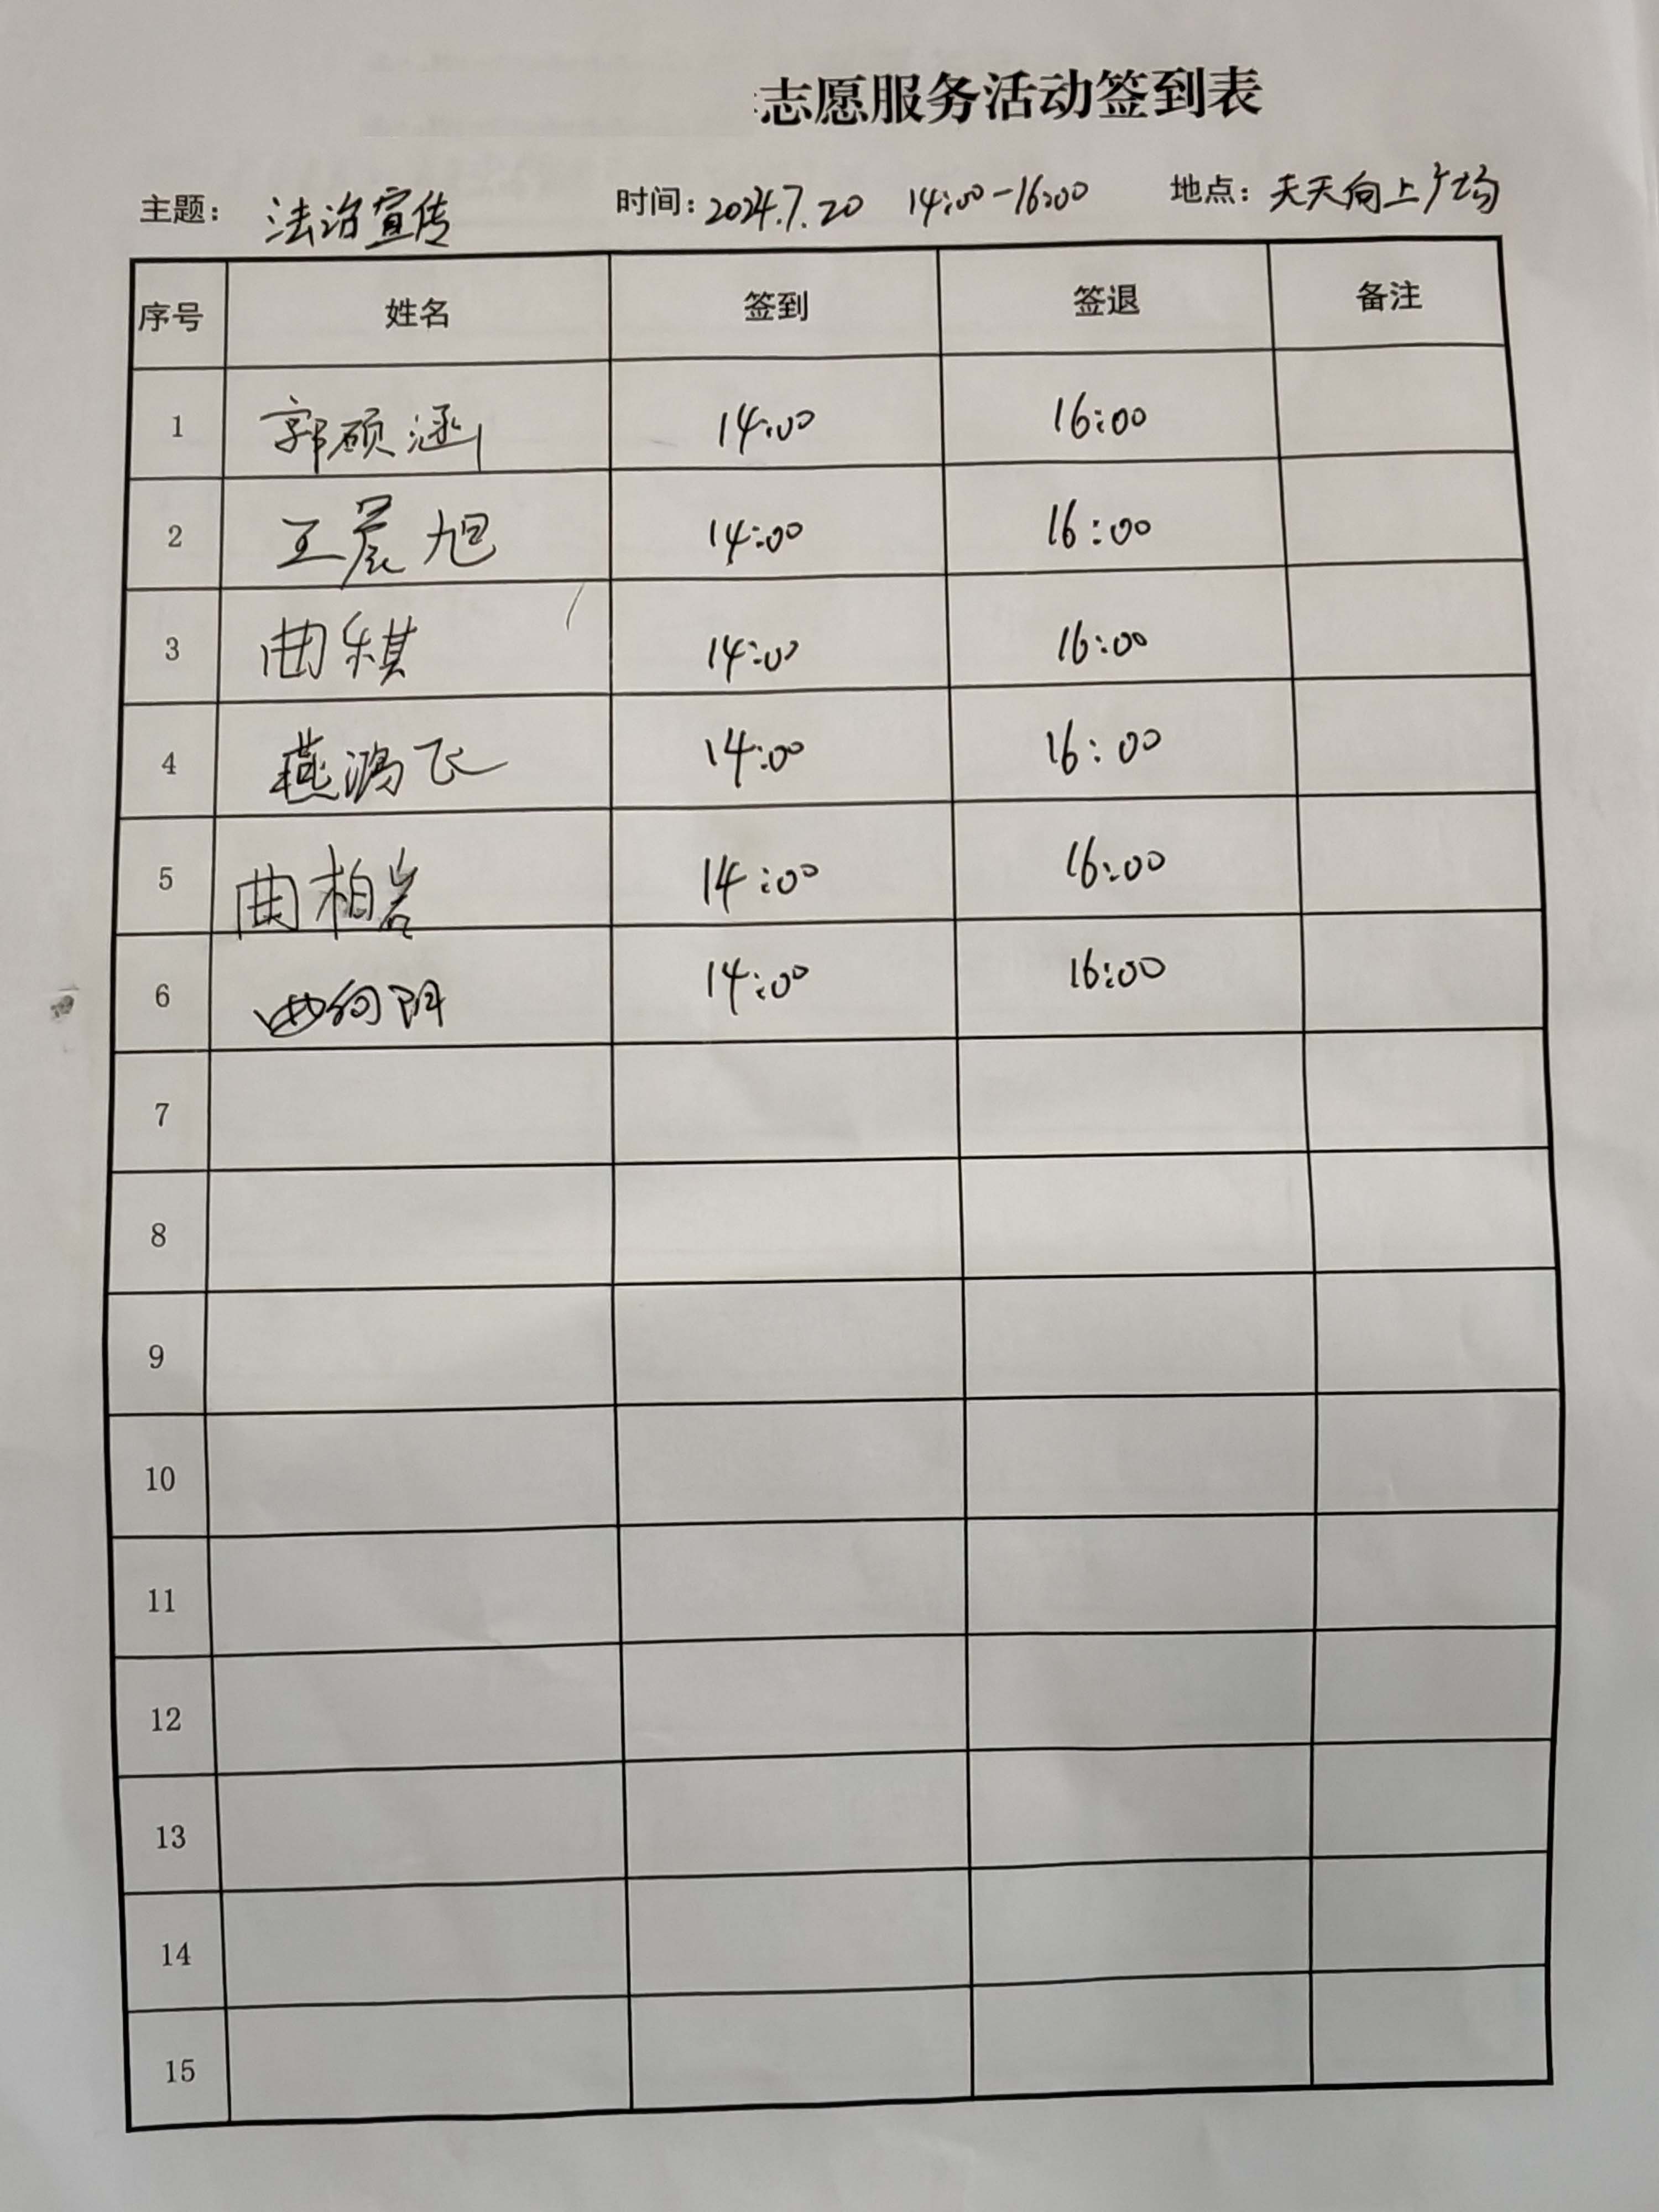 志愿服务活动签到表
主题： 法治宣传 时间：2024.7.20 14:00-16:00 地点：天天向上广场
序号 姓名 签到 签退 备注
1 郭硕涵 14:00 16:00
2 王晨旭 14:00 16:00
3 曲棋 14:00 16:00
4 燕鸿飞 14:00 16:00
5 曲相岩 14:00 16:00
6 曲向阳 14:00 16:00
7
8
9
10
11
12
13
14
15